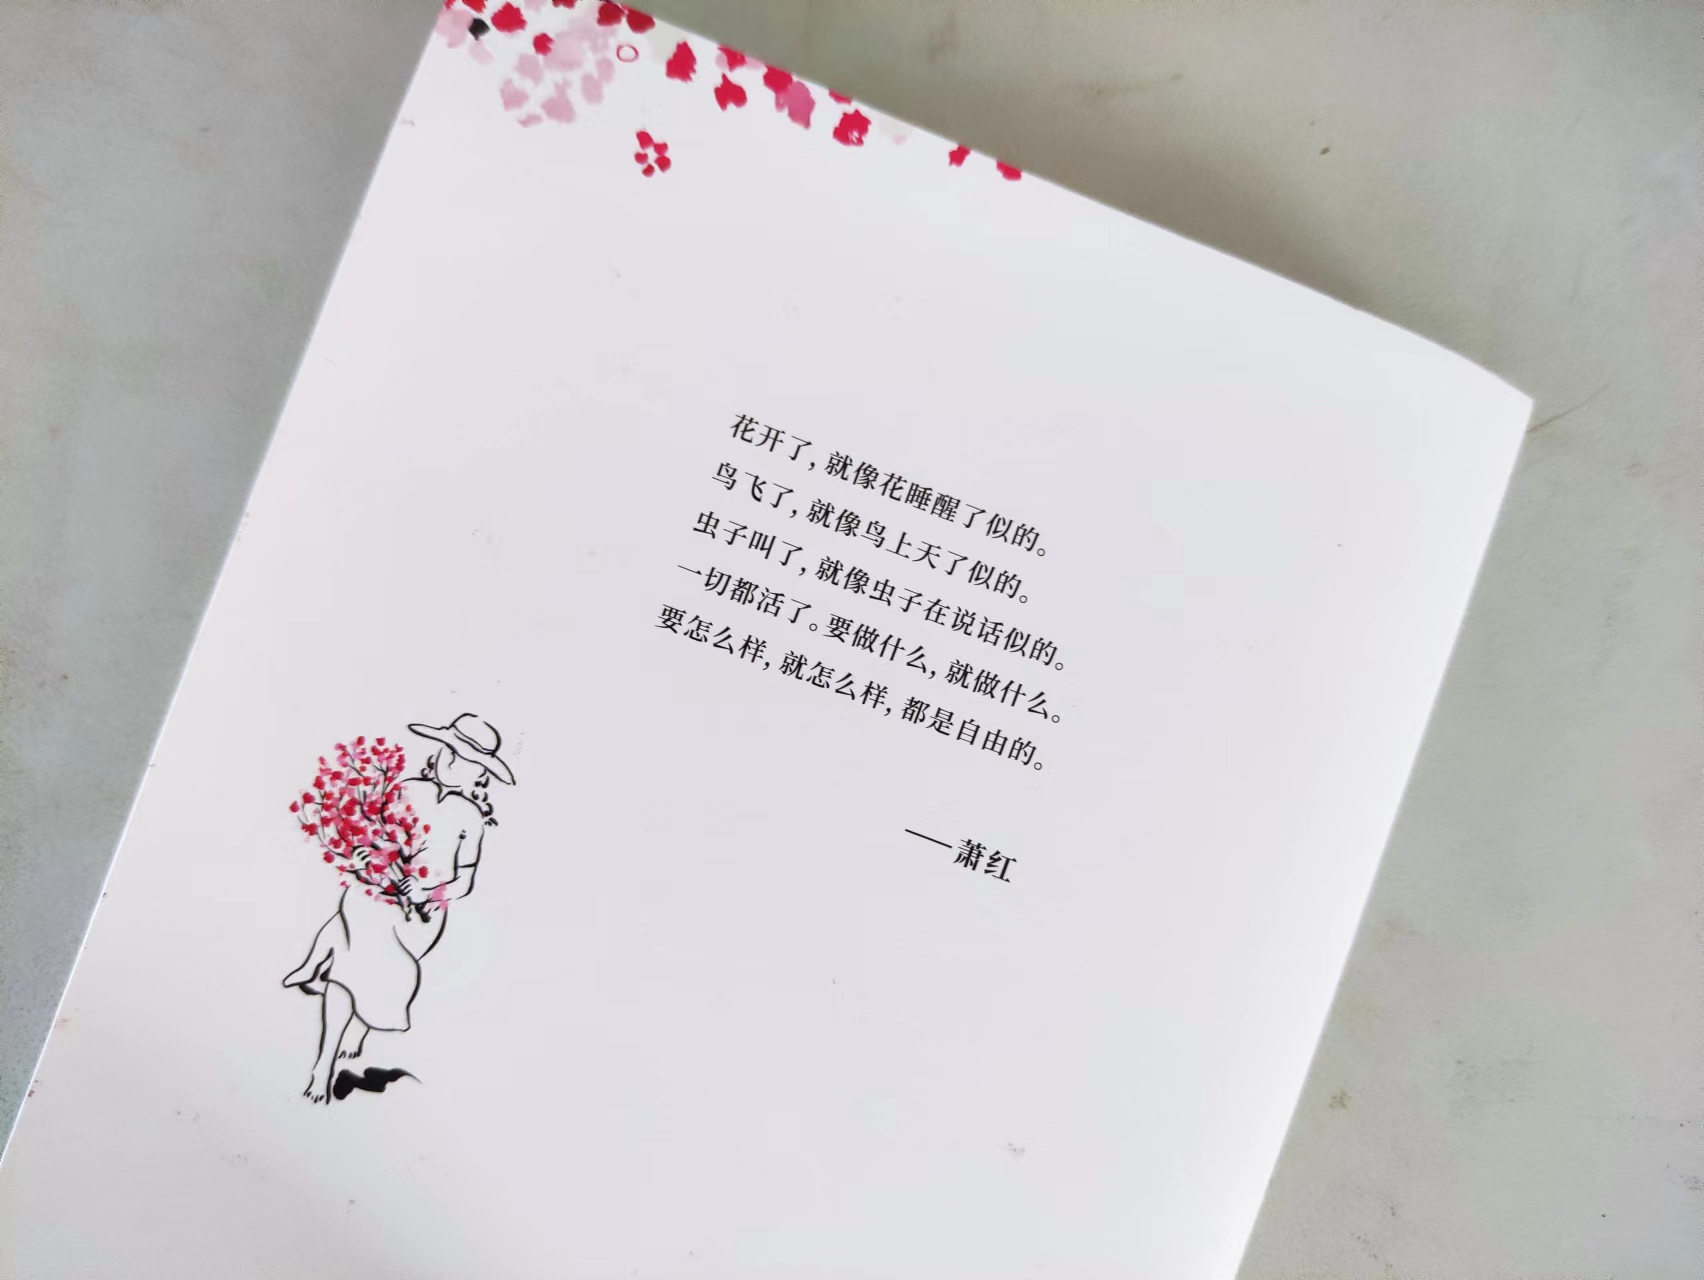 花开了，就像花睡醒了似的。
鸟飞了，就像鸟上天了似的。
虫子叫了，就像虫子在说话似的。
一切都活了。要做什么，就做什么。
要怎么样，就怎么样，都是自由的。
——萧红